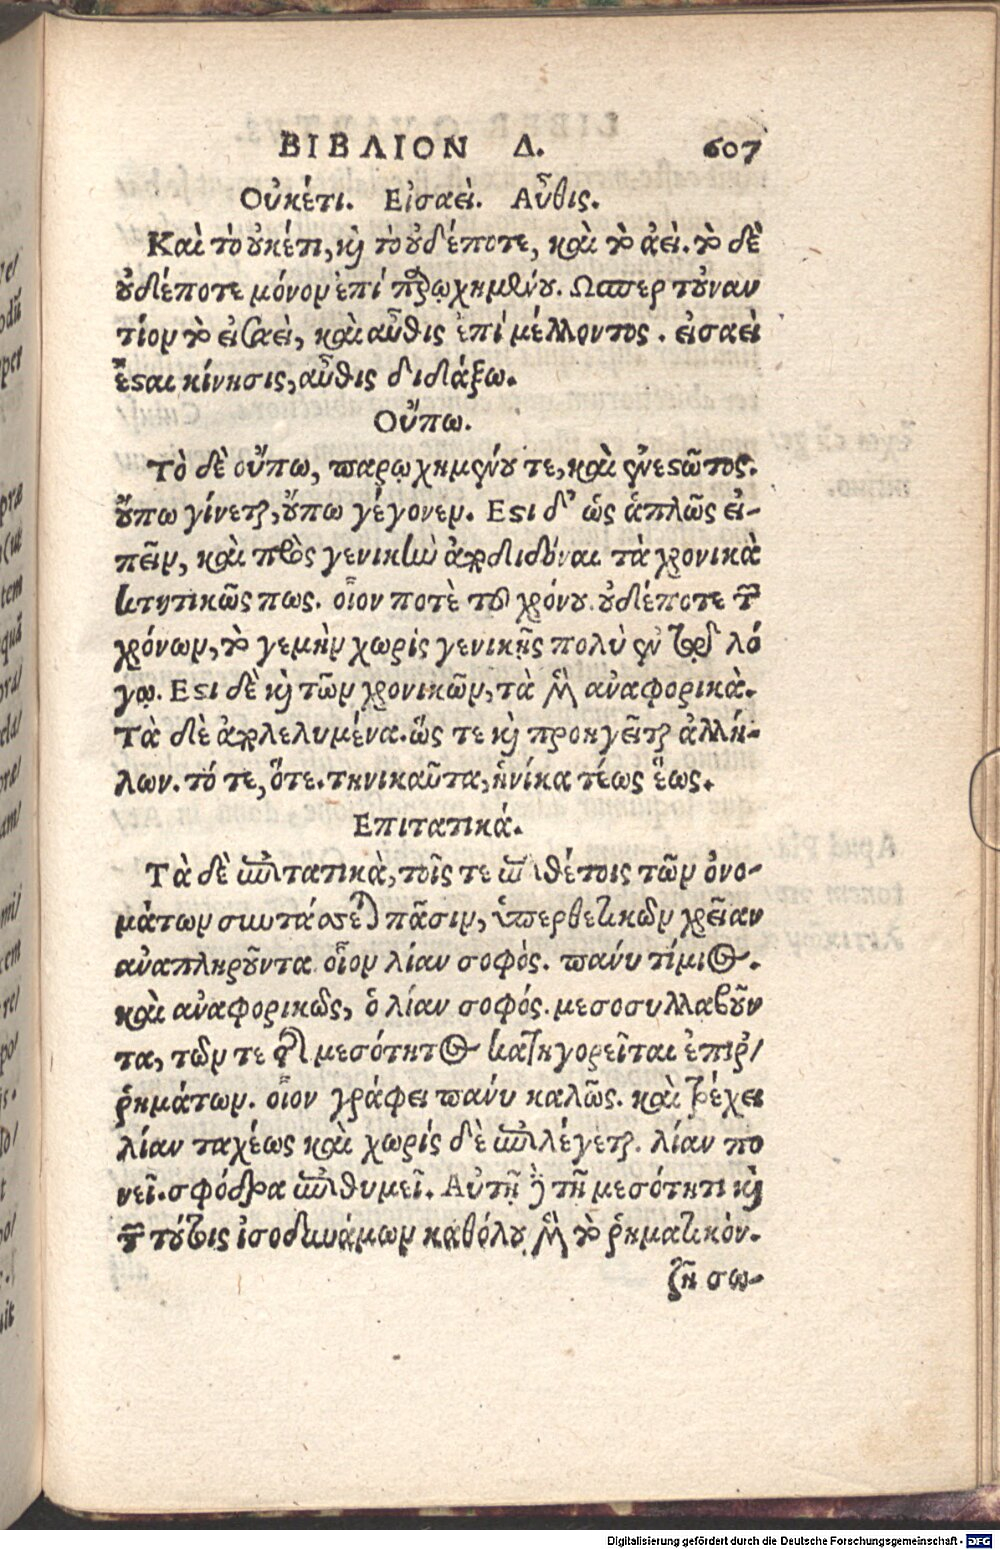 ΒΙΒΛΙΟΝ Δ. 607
Οὐκέτι. Εἰσαεὶ. Αὖθις.
Καὶ τὸ οὐκέτι, καὶ τὸ οὐδέποτε, καὶ τὸ ἀεὶ. τὸ δὲ
οὐδέποτε μόνον ἐπὶ παρῳχημένου. Ωσπερ τοὐναν
τίον τὸ εἰσαεὶ, καὶ αὖθις ἐπὶ μέλλοντος. εἰσαεὶ
ἔσται κίνησις, αὖθις διδάξω.
Οὔπω.
Τὸ δὲ οὔπω, παρῳχημένου τε, καὶ ἐνεστῶτος.
οὔπω γίνεται, οὔπω γέγονεν. Εστι δ' ὡς ἁπλῶς εἰ-
πεῖν, καὶ πρὸς γενικὴν ἀποδιδόναι τὰ χρονικὰ
κτητικῶς πως. οἷον ποτὲ τοῦ χρόνου. οὐδέποτε τῶν
χρόνων, τὸ γεμὴν χωρὶς γενικῆς πολὺ ἐν τῷ λό
γῳ. Εστι δὲ καὶ τῶν χρονικῶν, τὰ μὲν ἀναφορικὰ.
Τὰ δὲ ἀπολελυμένα. ὥς τε καὶ προηγεῖται ἀλλή-
λων. τό τε, ὅτε. τηνικαῦτα, ἡνίκα τέως ἕως.
Επιτατικά.
Τὰ δὲ ἐπιτατικὰ, τοῖς τε ἐπιθέτοις τῶν ὀνο-
μάτων συντάσσεται πᾶσιν, ὑπερθετικῶν χρείαν
ἀναπληροῦντα οἷον λίαν σοφὸς. πάνυ τίμιος.
καὶ ἀναφορικῶς, ὁ λίαν σοφός. μεσοσυλλαβοῦν
τα, τῶν τε μεσότητος κατηγορεῖται ἐπιρ/
ῥημάτων. οἷον γράφει πάνυ καλῶς. καὶ τρέχει
λίαν ταχέως καὶ χωρὶς δὲ ἐπιλέγεται. λίαν πο
νεῖ. σφόδρα ἐπιθυμεῖ. Αὐτῇ δὲ τῇ μεσότητι καὶ
τούτοις ἰσοδυνάμων καθόλου μὲν τὸ ῥηματικὸν.
ζῆ σω-
Digitalisierung gefördert durch die Deutsche Forschungsgemeinschaft - DFG